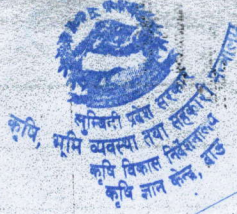 लुम्बिनी प्रदेश सरकार
कृषि, भूमि व्यवस्था तथा सहकारी मन्त्रालय
कृषि विकास निर्देशनालय
कृषि ज्ञान केन्द्र, दाङ